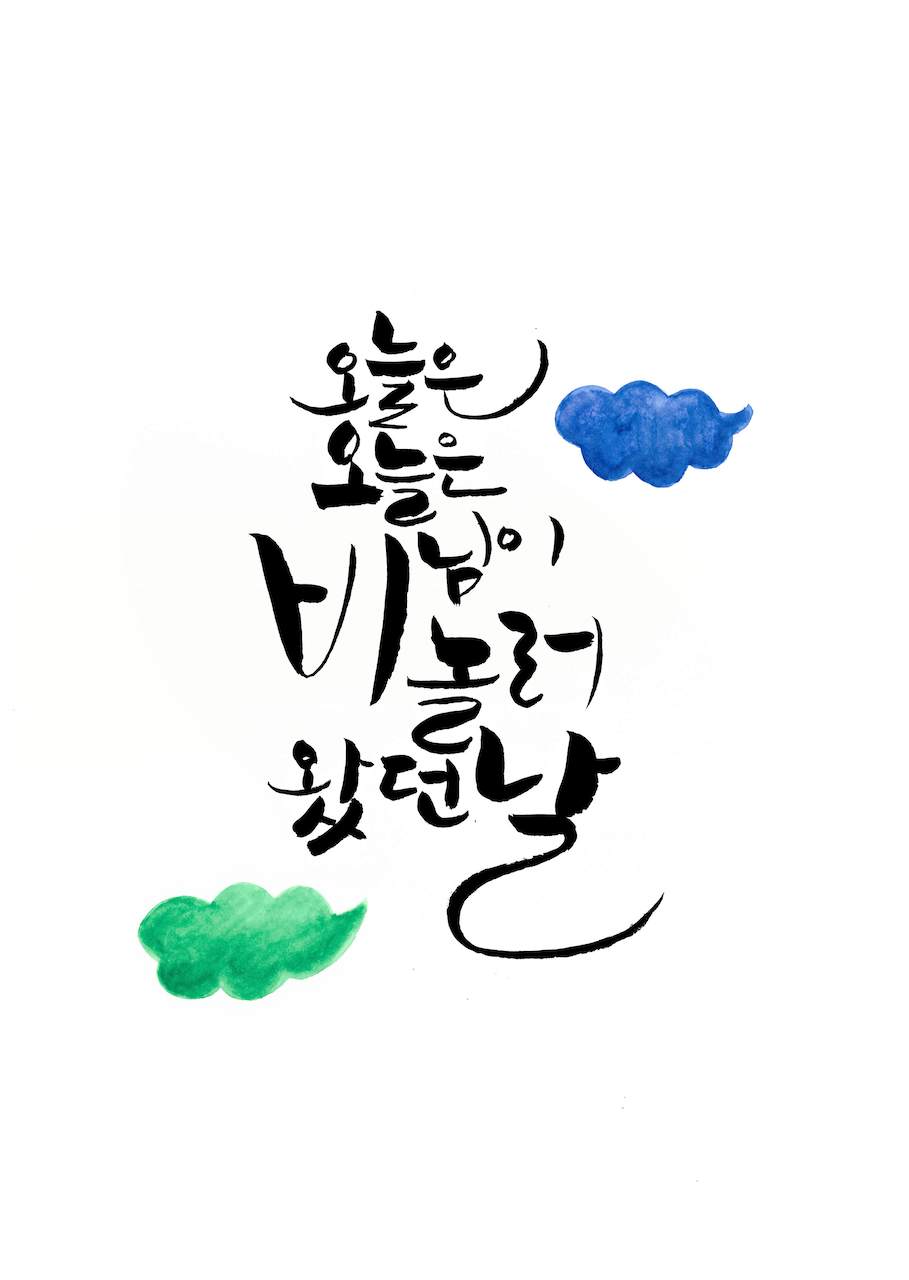 오늘은
오늘은
비님이
놀러
왔던날